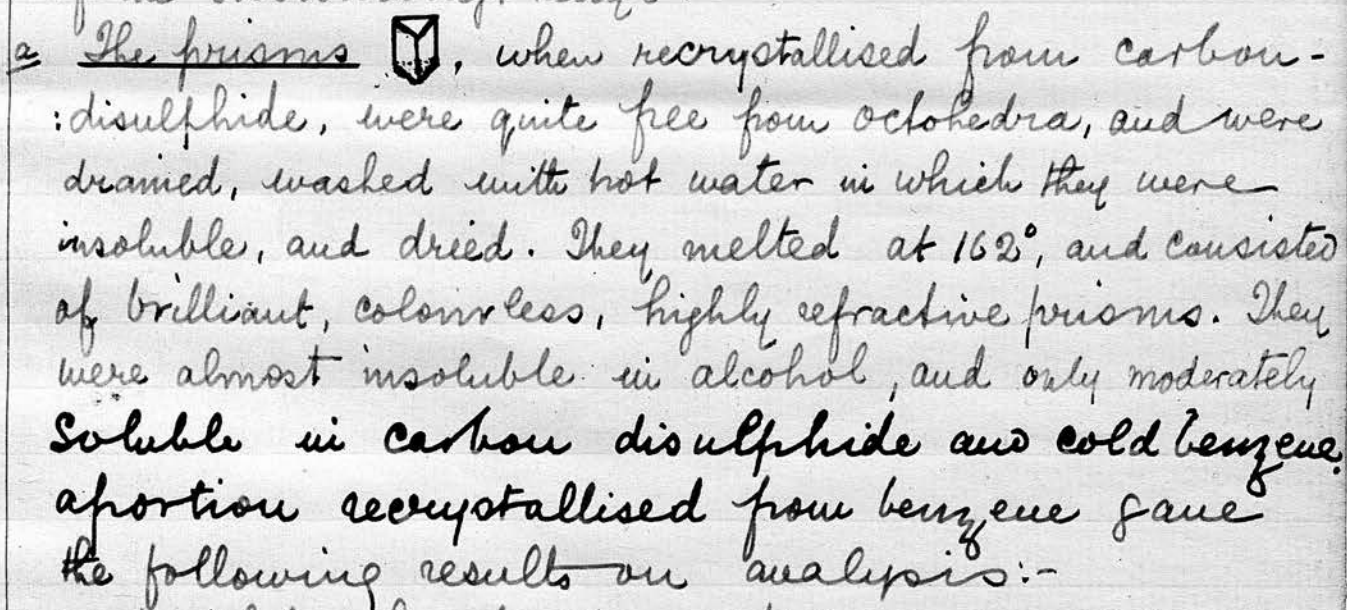 a The prisms , when recrystallised from carbon-
:disulphide, were quite free from octohedra, and were
drained, washed with hot water in which they were
insoluble, and dried. They melted at 162°, and consisted
of brilliant, colourless, highly refractive prisms. They
were almost insoluble in alcohol, and only moderately
soluble in carbon disulphide and cold benzene.
a portion recrystallised from benzene gave
the following results on analysis:-